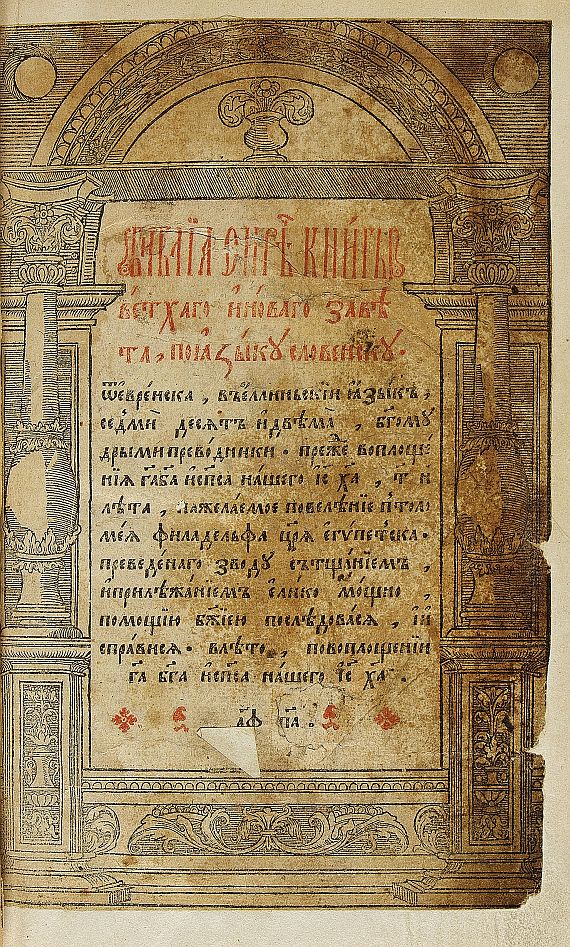 Библїа сирѣч книгы
ветхаго и новаго завѣ
та, по ѧзыку словенску.
ѿ еврейска, въ еллиньскїи ѧзыкъ,
седмиⷨ десѧтъ и двѣма, б҃гомꙋ
дрыми преводники. прежⷣе воплоще
нїѧ г҃а б҃га и сп҃са нашего і҆с х҃а, т҃ и
лѣта, на желаемое повелѣнїе птоло
меѧ филадельфа ц҃рѧ египетска.
преведенаго зводу съ тщанїемъ,
и прилѣжанїемъ елико мощно,
помощїю бж҃їею послѣдовасѧ, и и
справисѧ. в лѣто, по воплощенїи
г҃а б҃га и сп҃са нашего і҆с х҃а.
҂аф па.